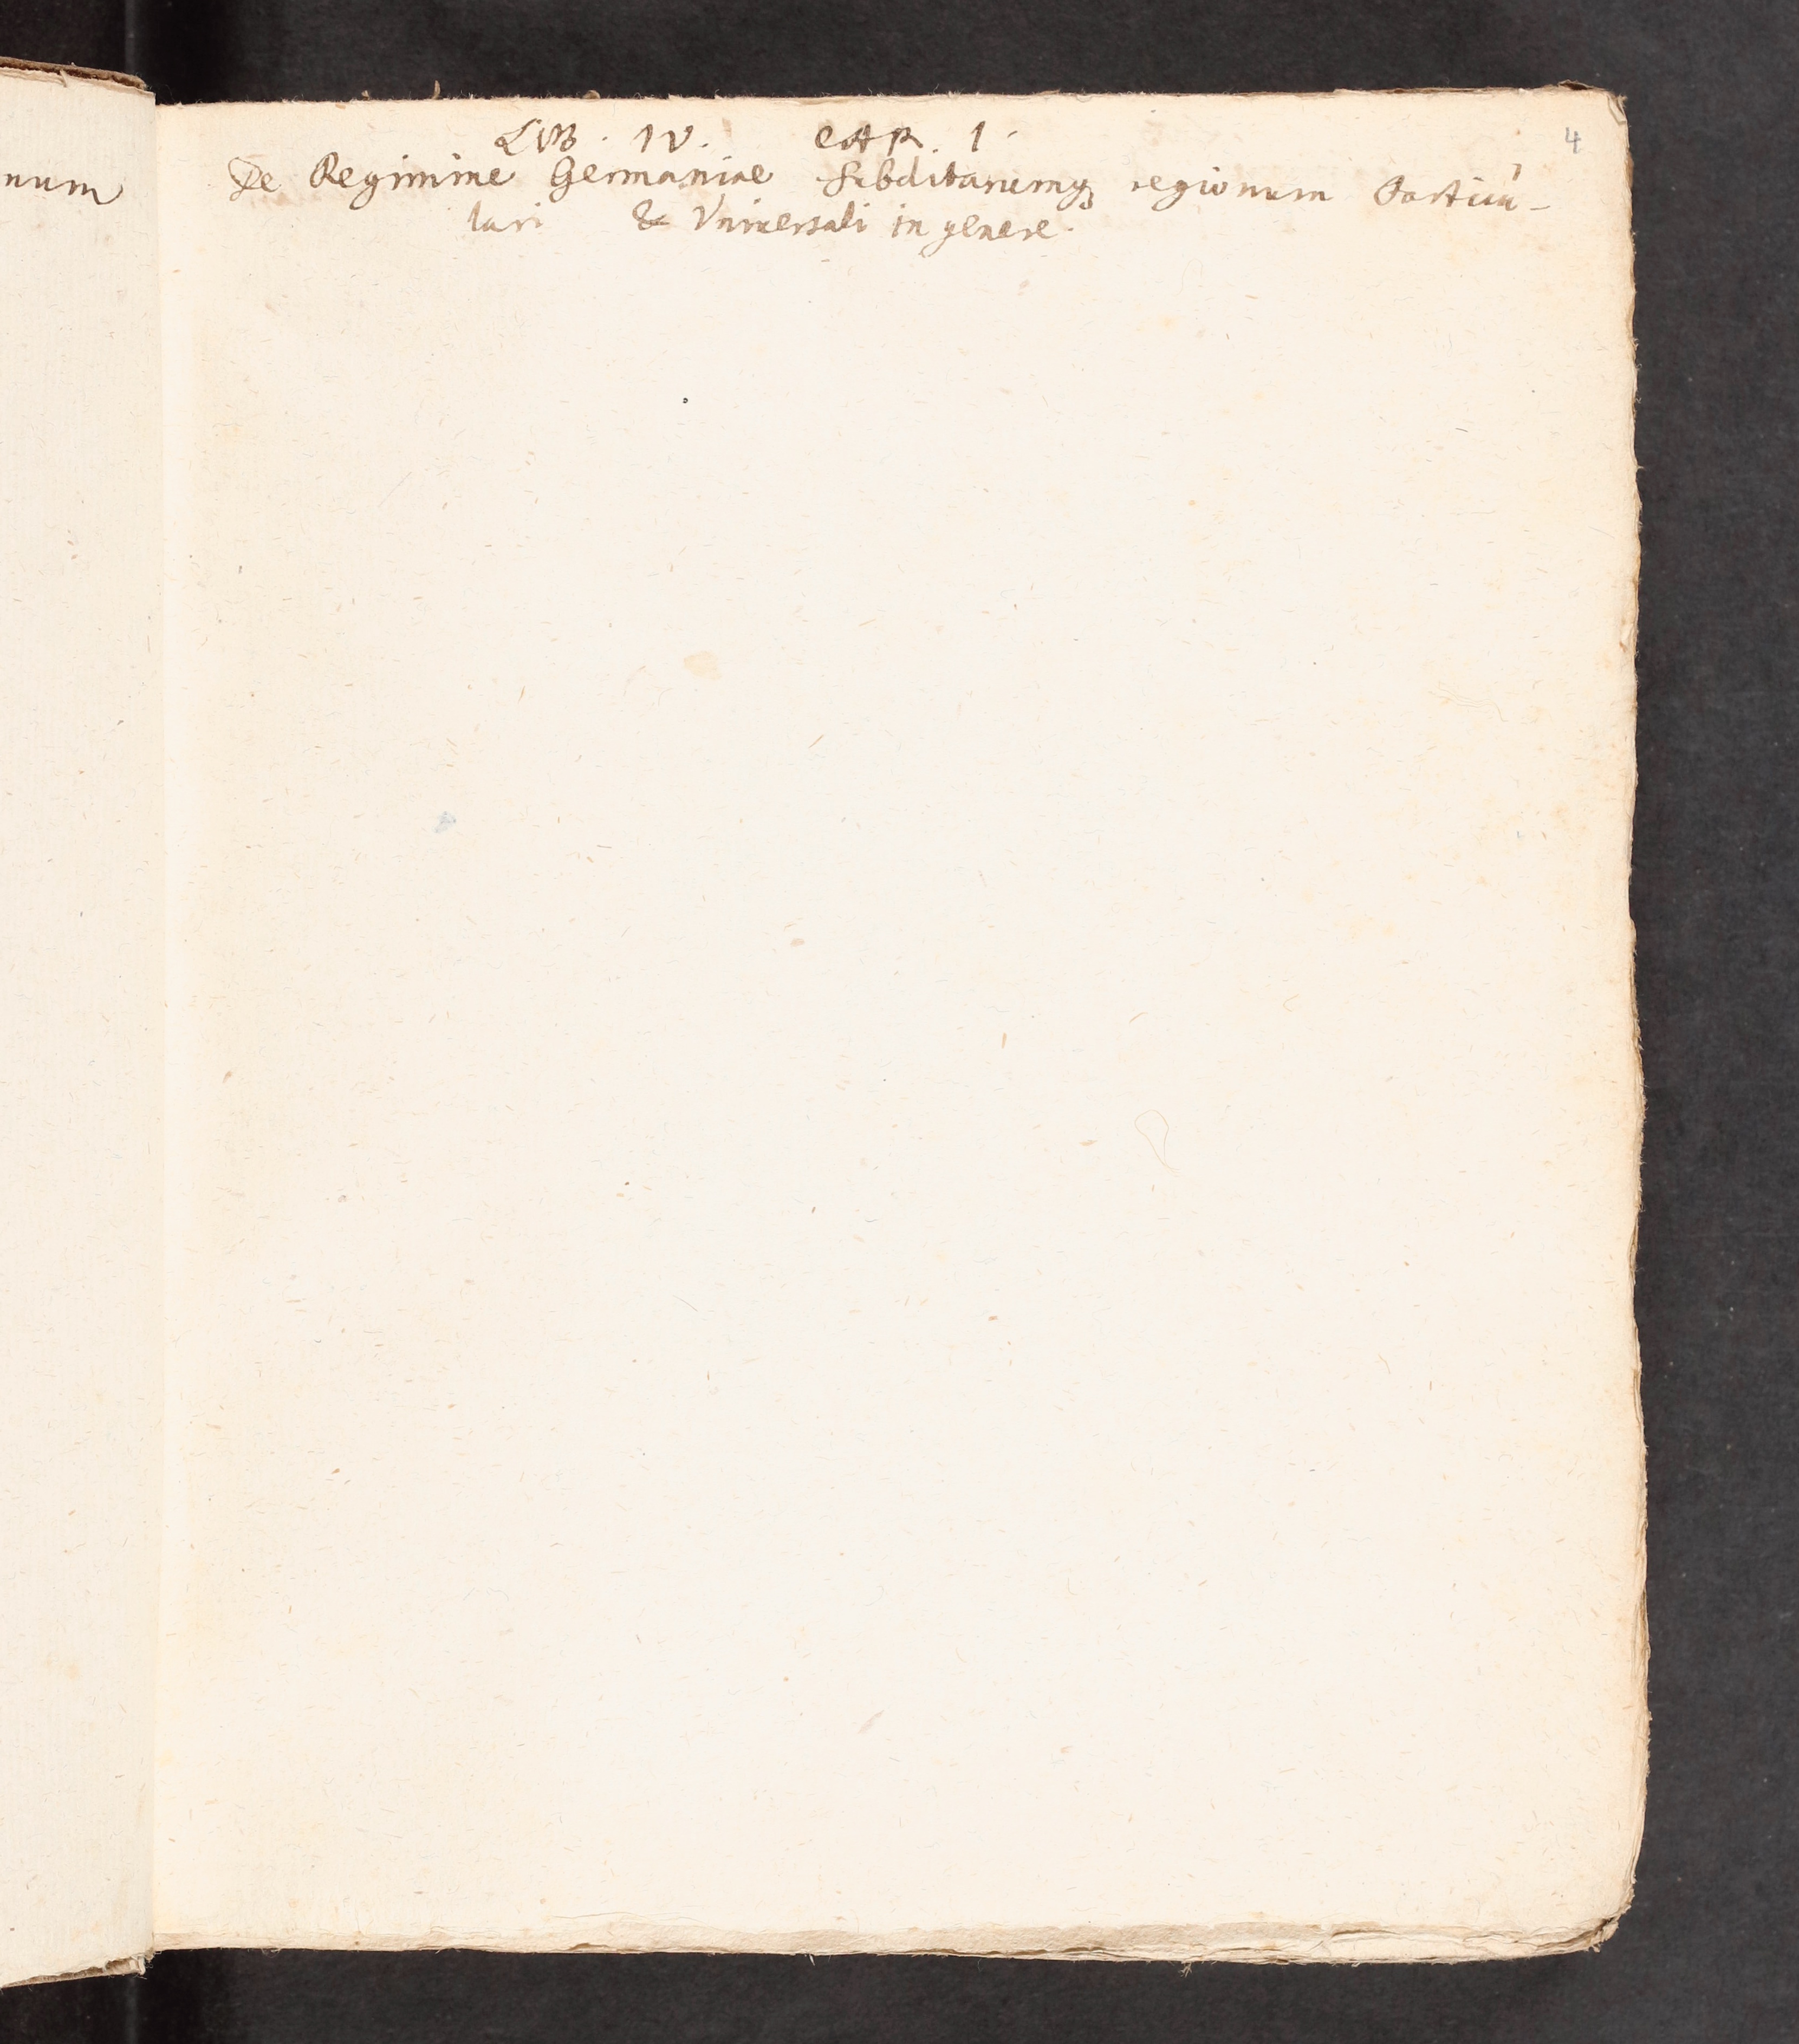 4
LIB. IV. CAP. 1.
num
De Regimine Germaniae subditarumq; regionum Particu-
lari & Vniversali in genere.